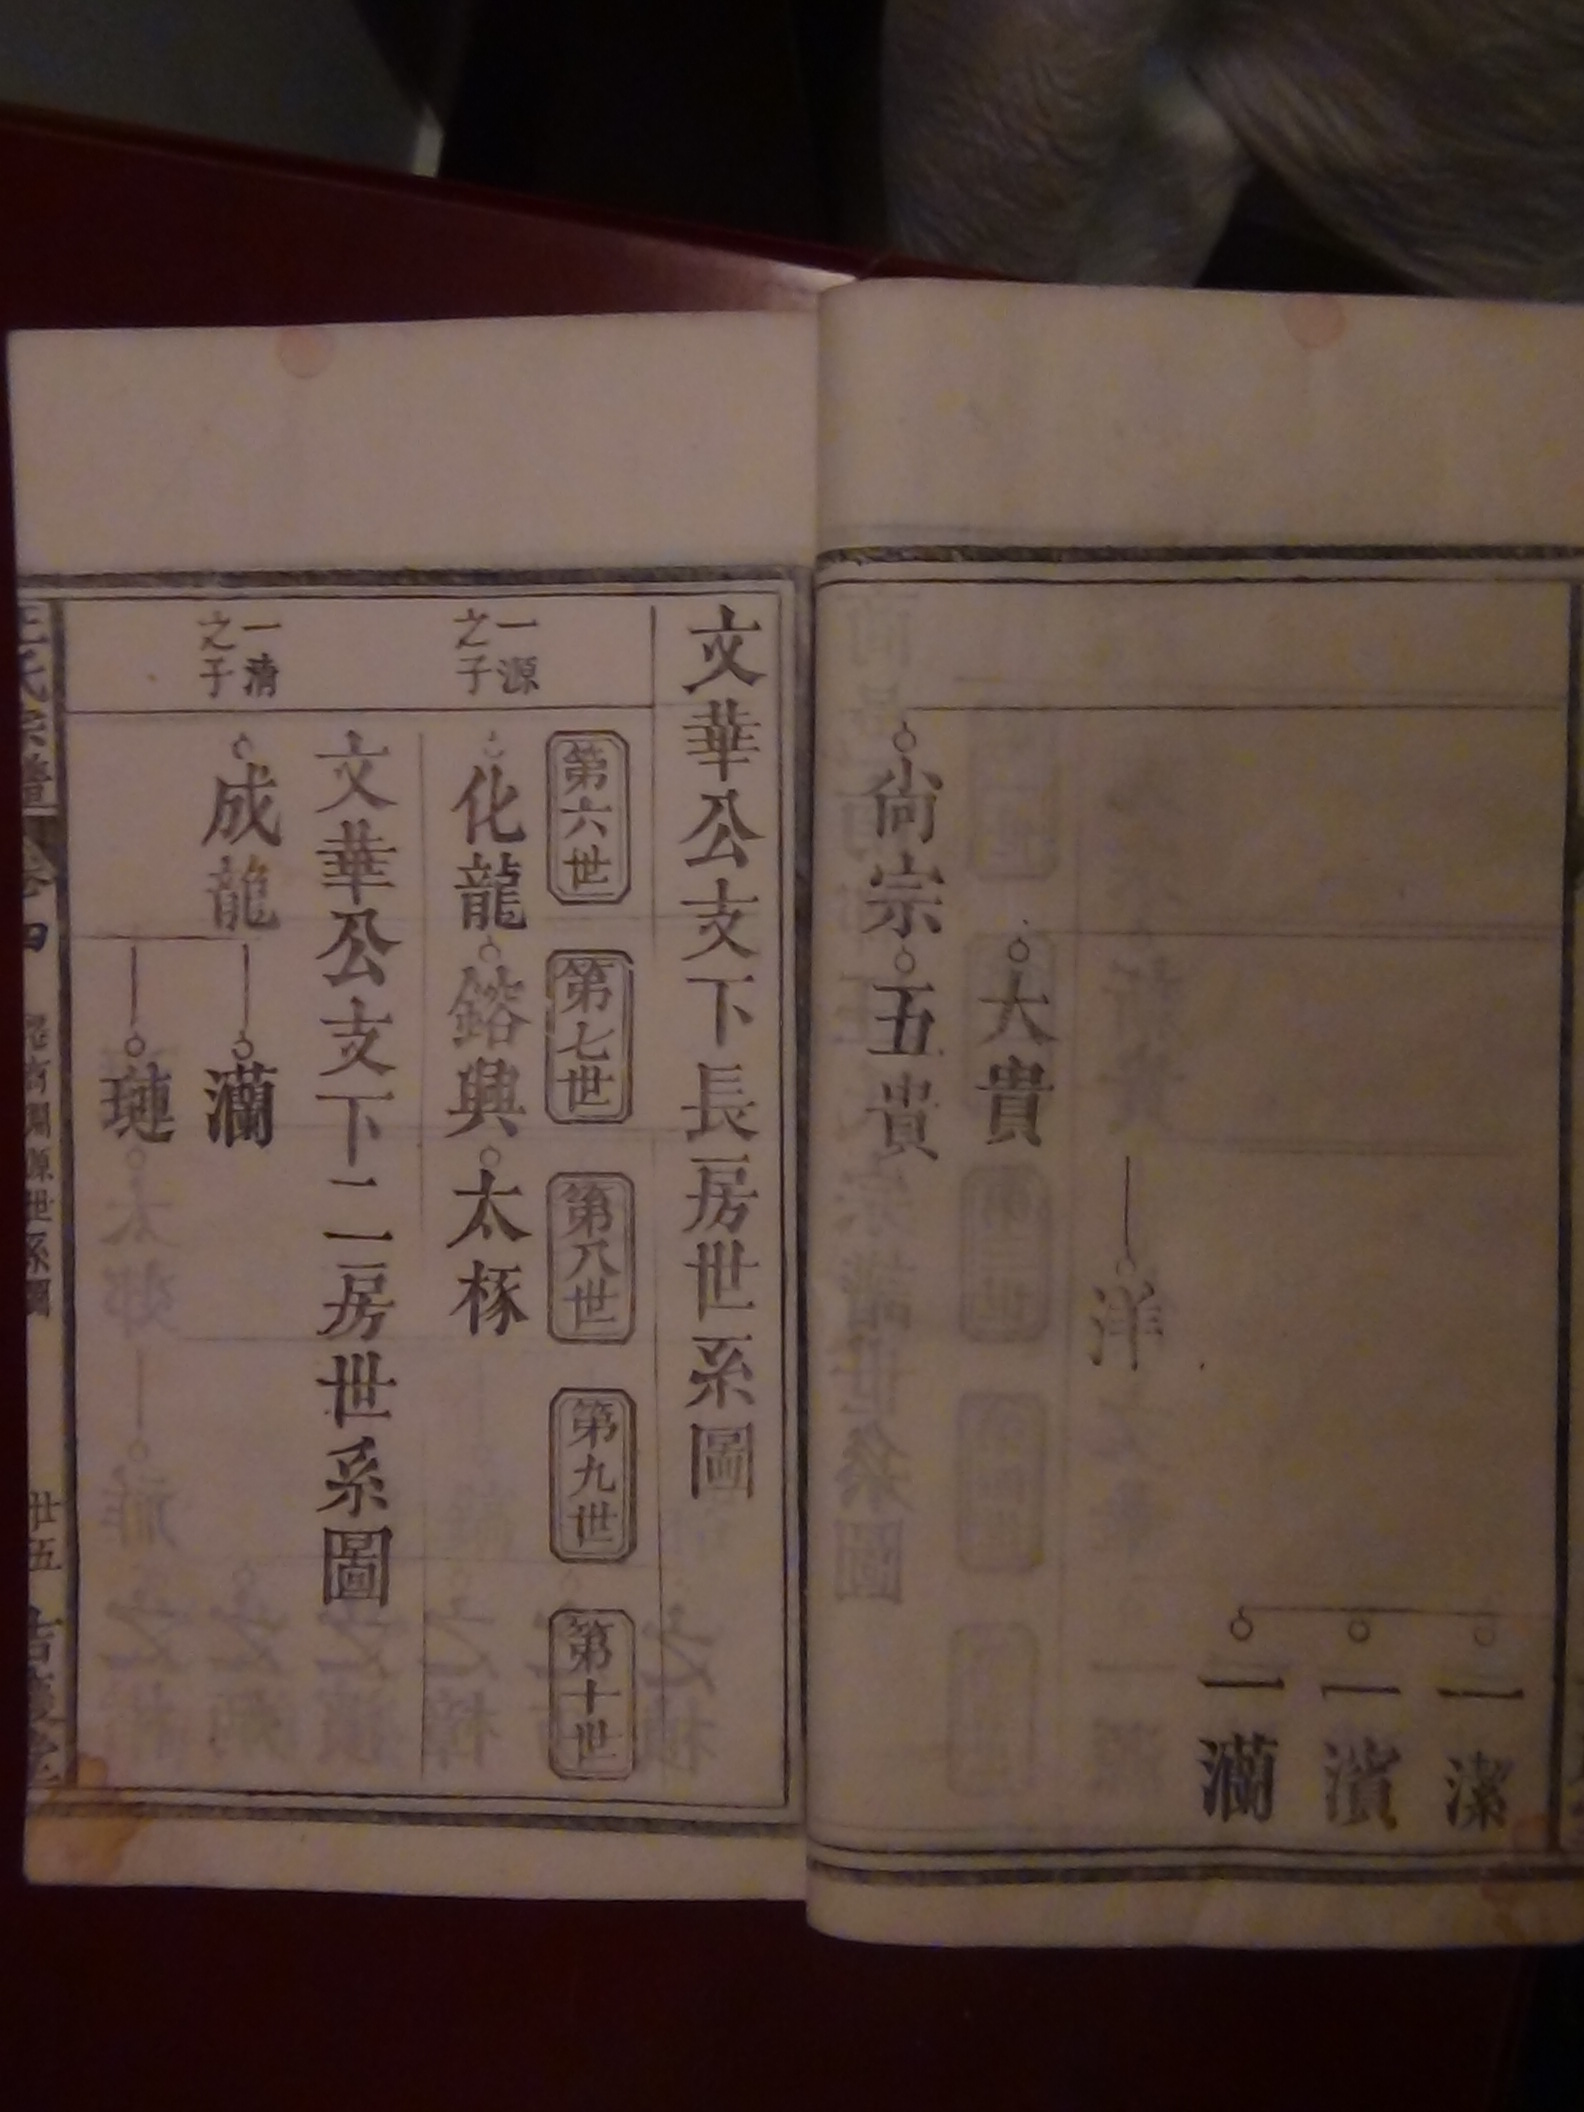 一潔
一濱
一瀾
洋
大貴
尚宗
五貴
文華公支下長房世系圖
第六世
第七世
第八世
第九世
第十世
一源
之子
化龍
鎔興
太椓
文華公支下二房世系圖
一清
之子
成龍
瀾
璉
王氏宗譜
卷四
淵源世系圖
廿五
吉慶堂